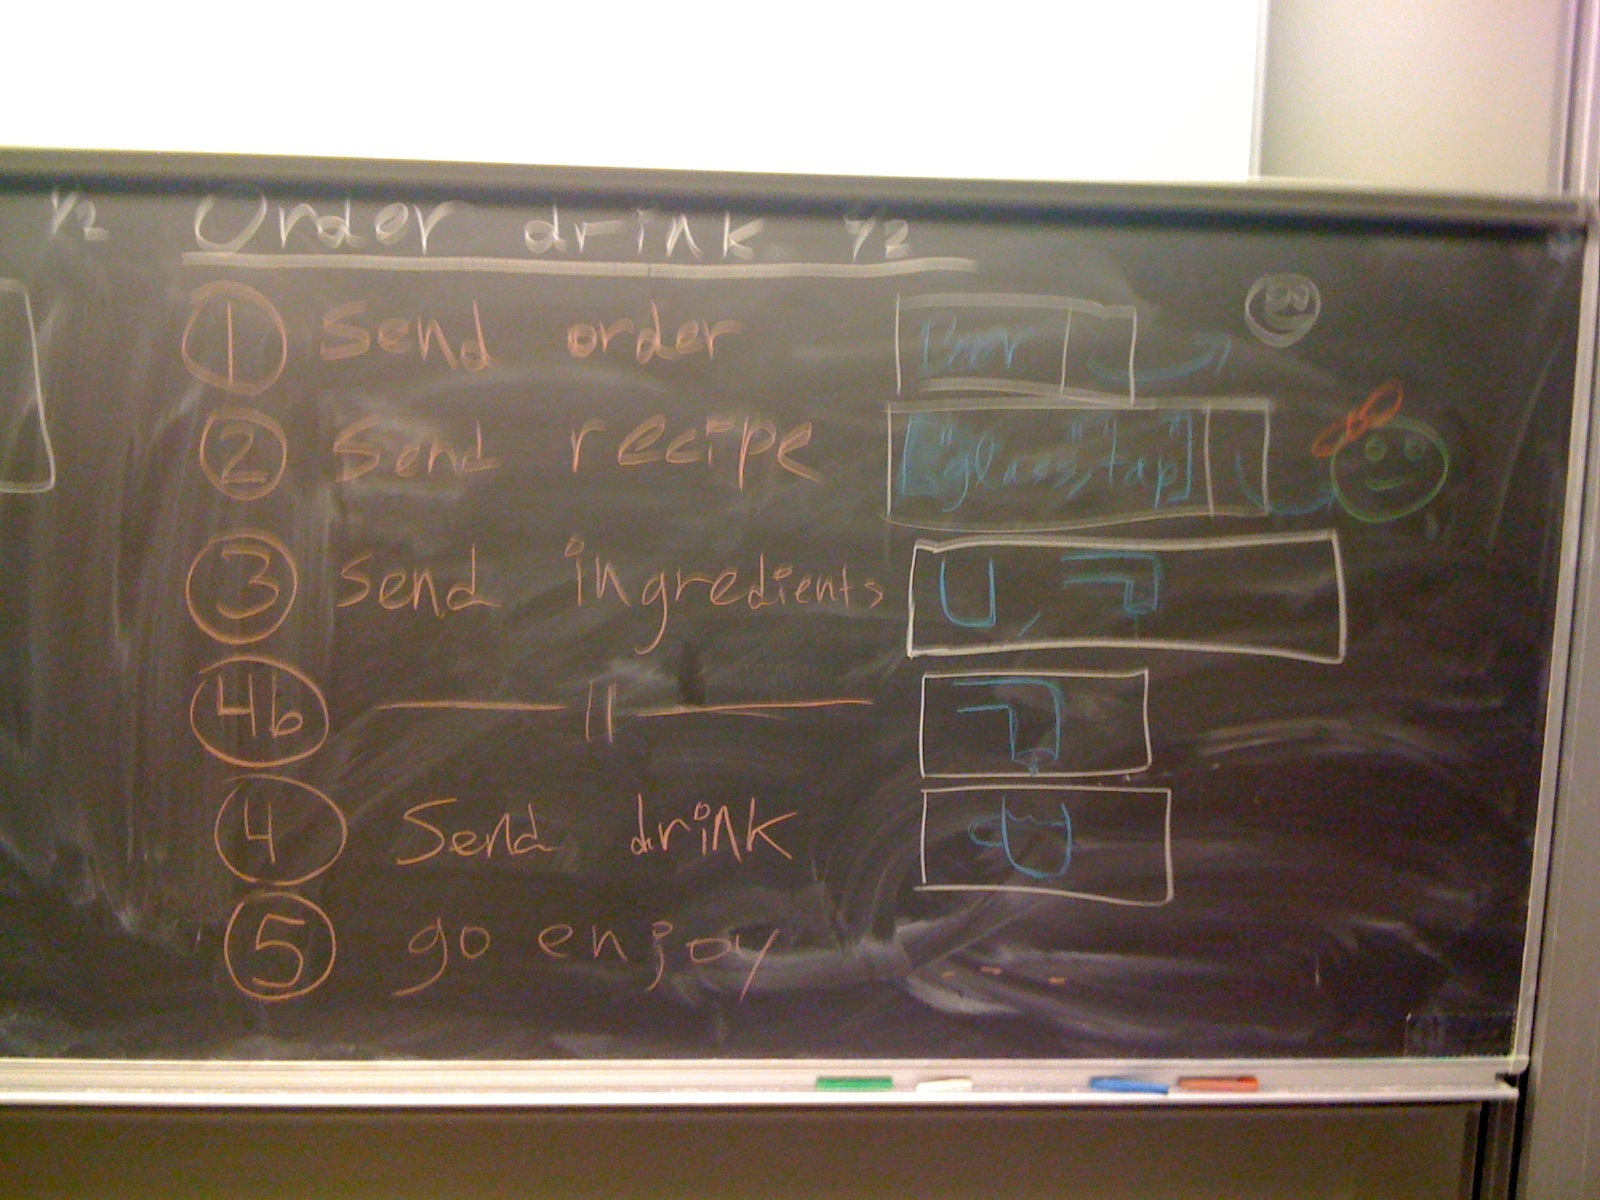 1/2 Order drink 1/2
1 Send order Beer B
2 Send recipe ["glass","tap"]
3 Send ingredients ,
4b —— 11 ——
4 Send drink
5 go enjoy